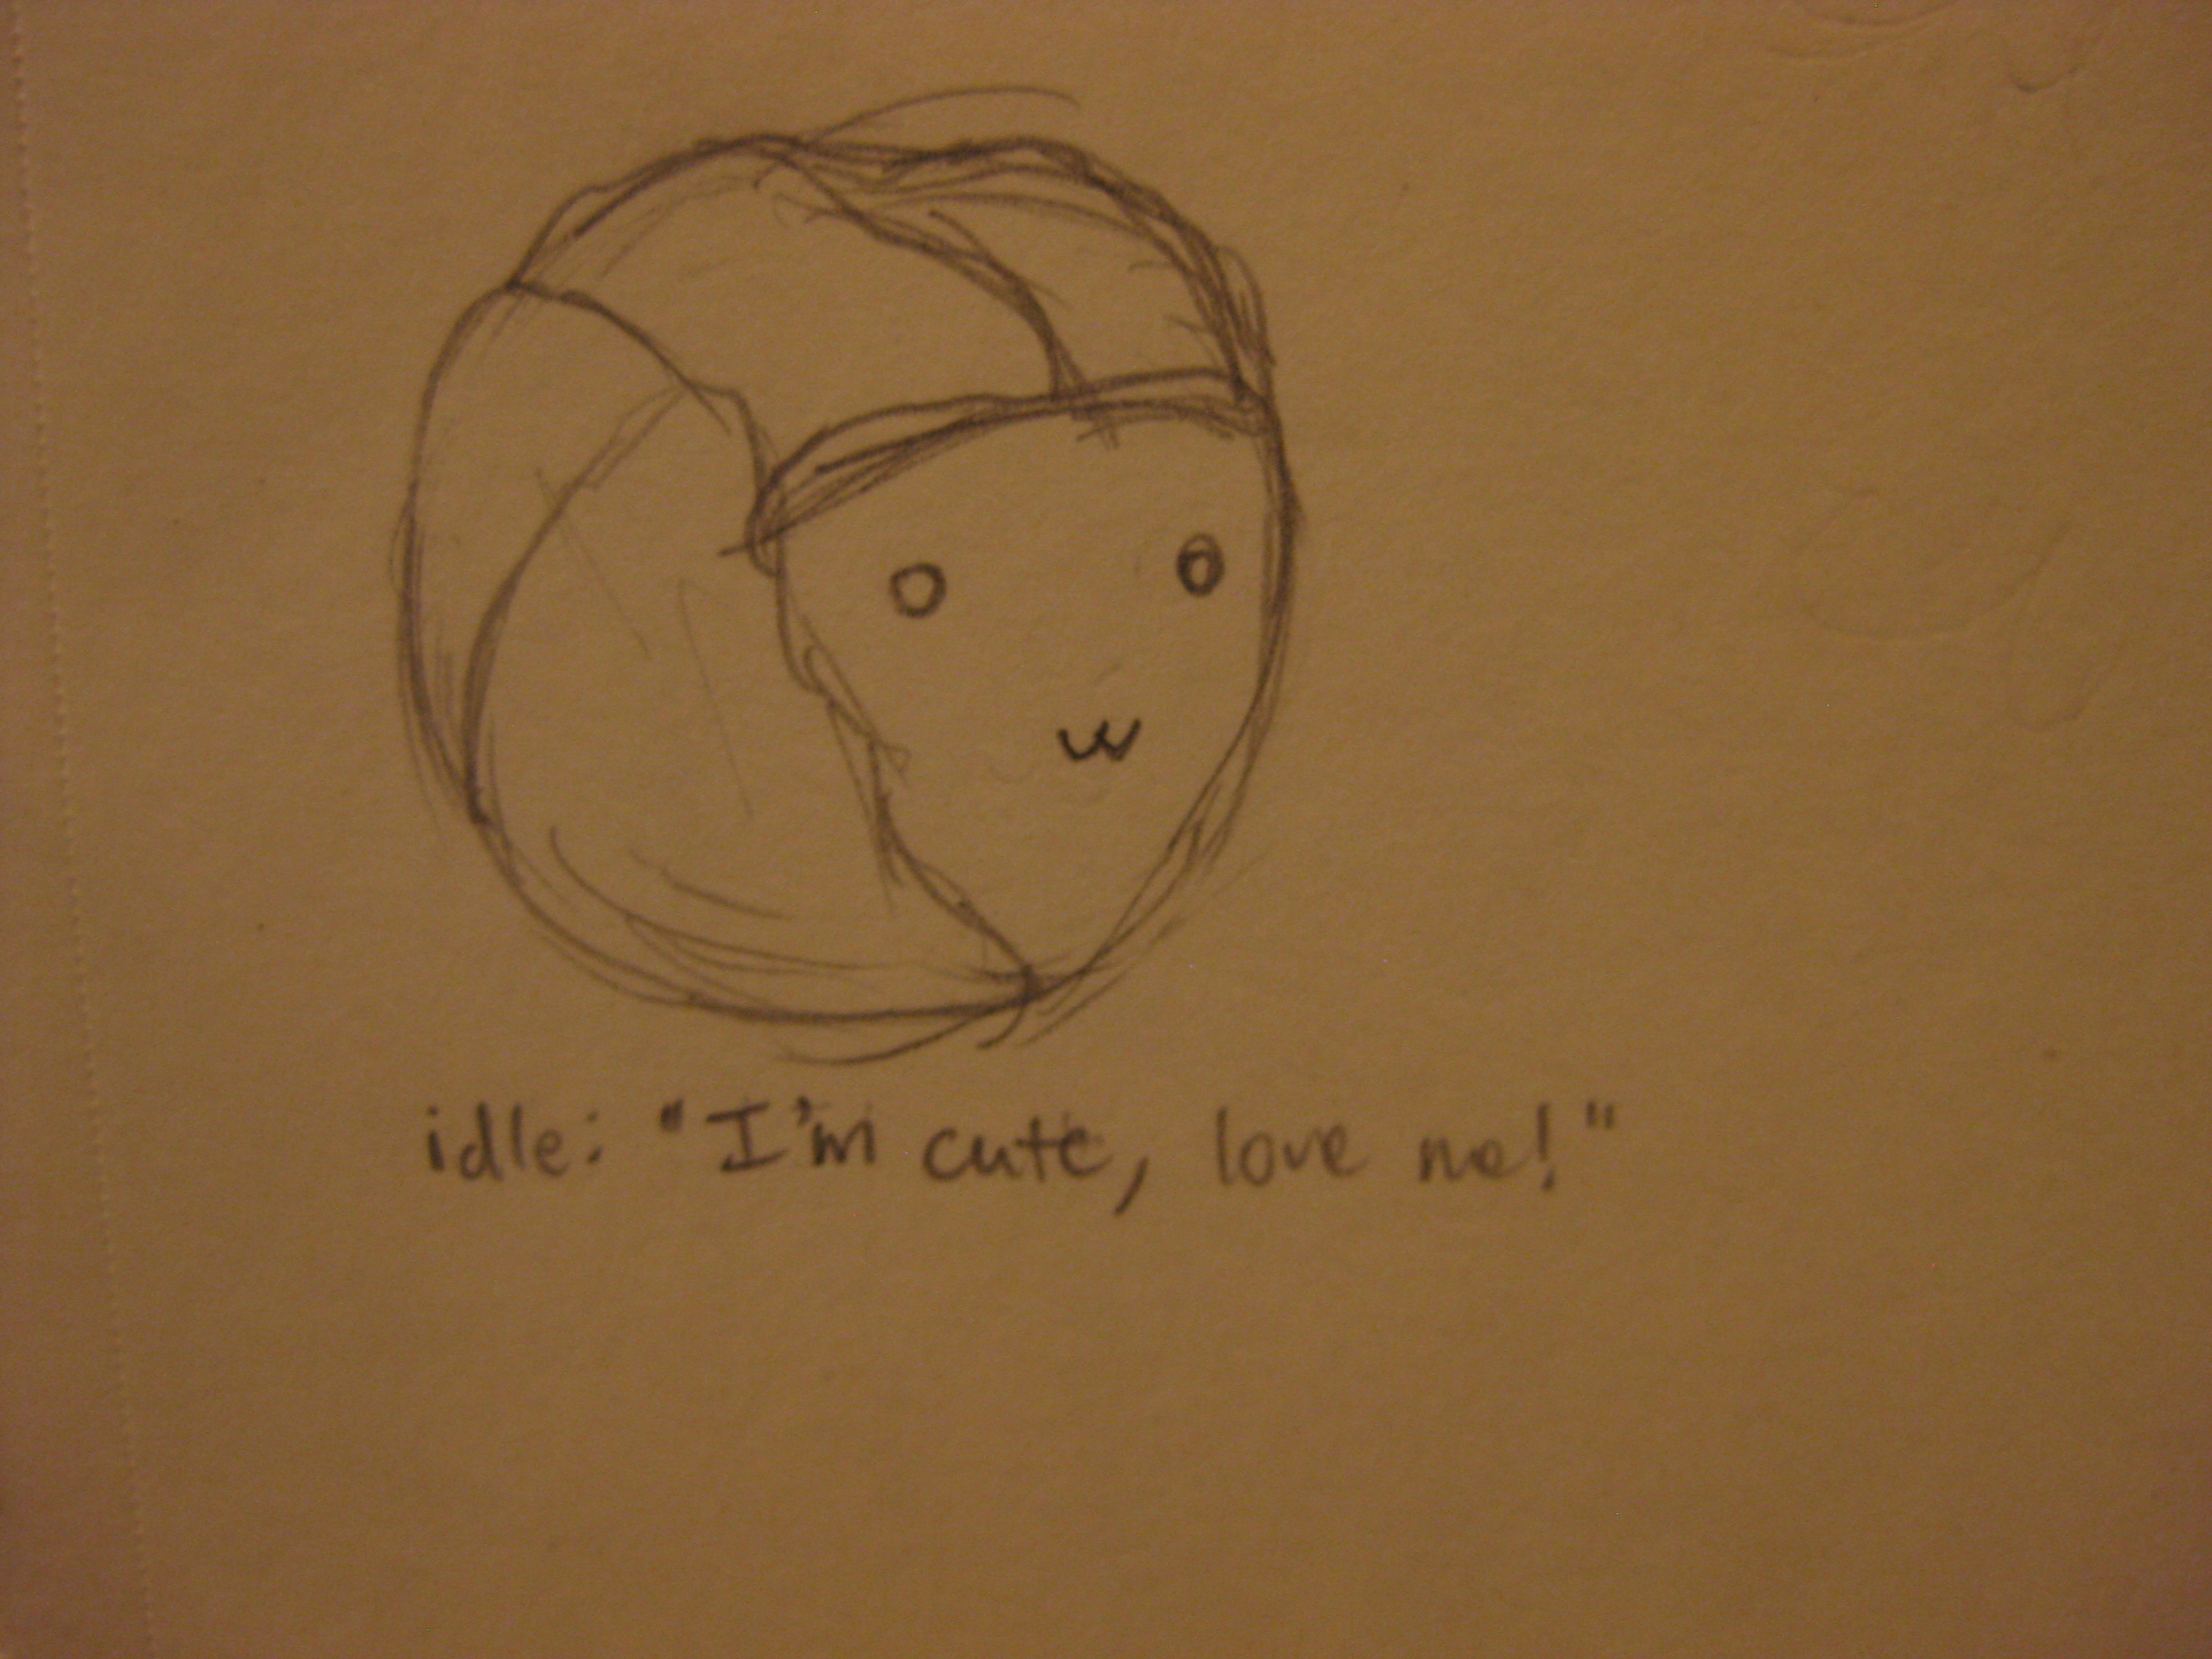 idle: "I'm cute, love me!"